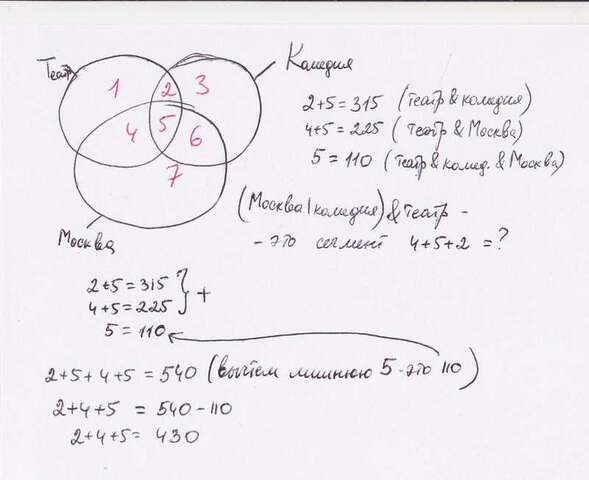 Театр
Комедия
1
2
3
4
5
6
7
Москва
2+5=315 (Театр & комедия)
4+5=225 (Театр & Москва)
5=110 (Театр & комед. & Москва)
(Москва|комедия)&Театр -
- это сегмент 4+5+2=?
2+5=315
4+5=225
} +
5=110
2+5+4+5=540 (вычтем лишнюю 5-это 110)
2+4+5 = 540-110
2+4+5= 430